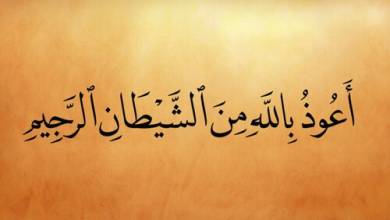 أَعُوذُ بِاللَّهِ مِنَ ٱلشَّيْطَانِ ٱلرَّجِيمِ